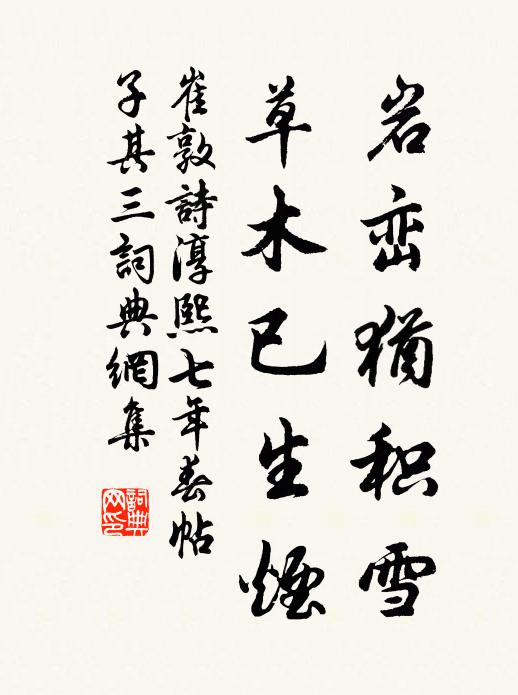 岩峦猶积雪
草木已生煙
崔敦詩淳熙七年春帖
子其三詞典網集
詞典网印